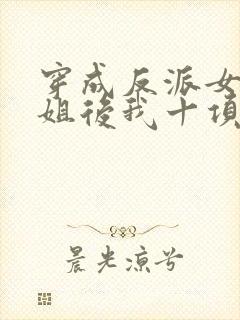 穿成反派女
姐後我十項
晨光涼兮